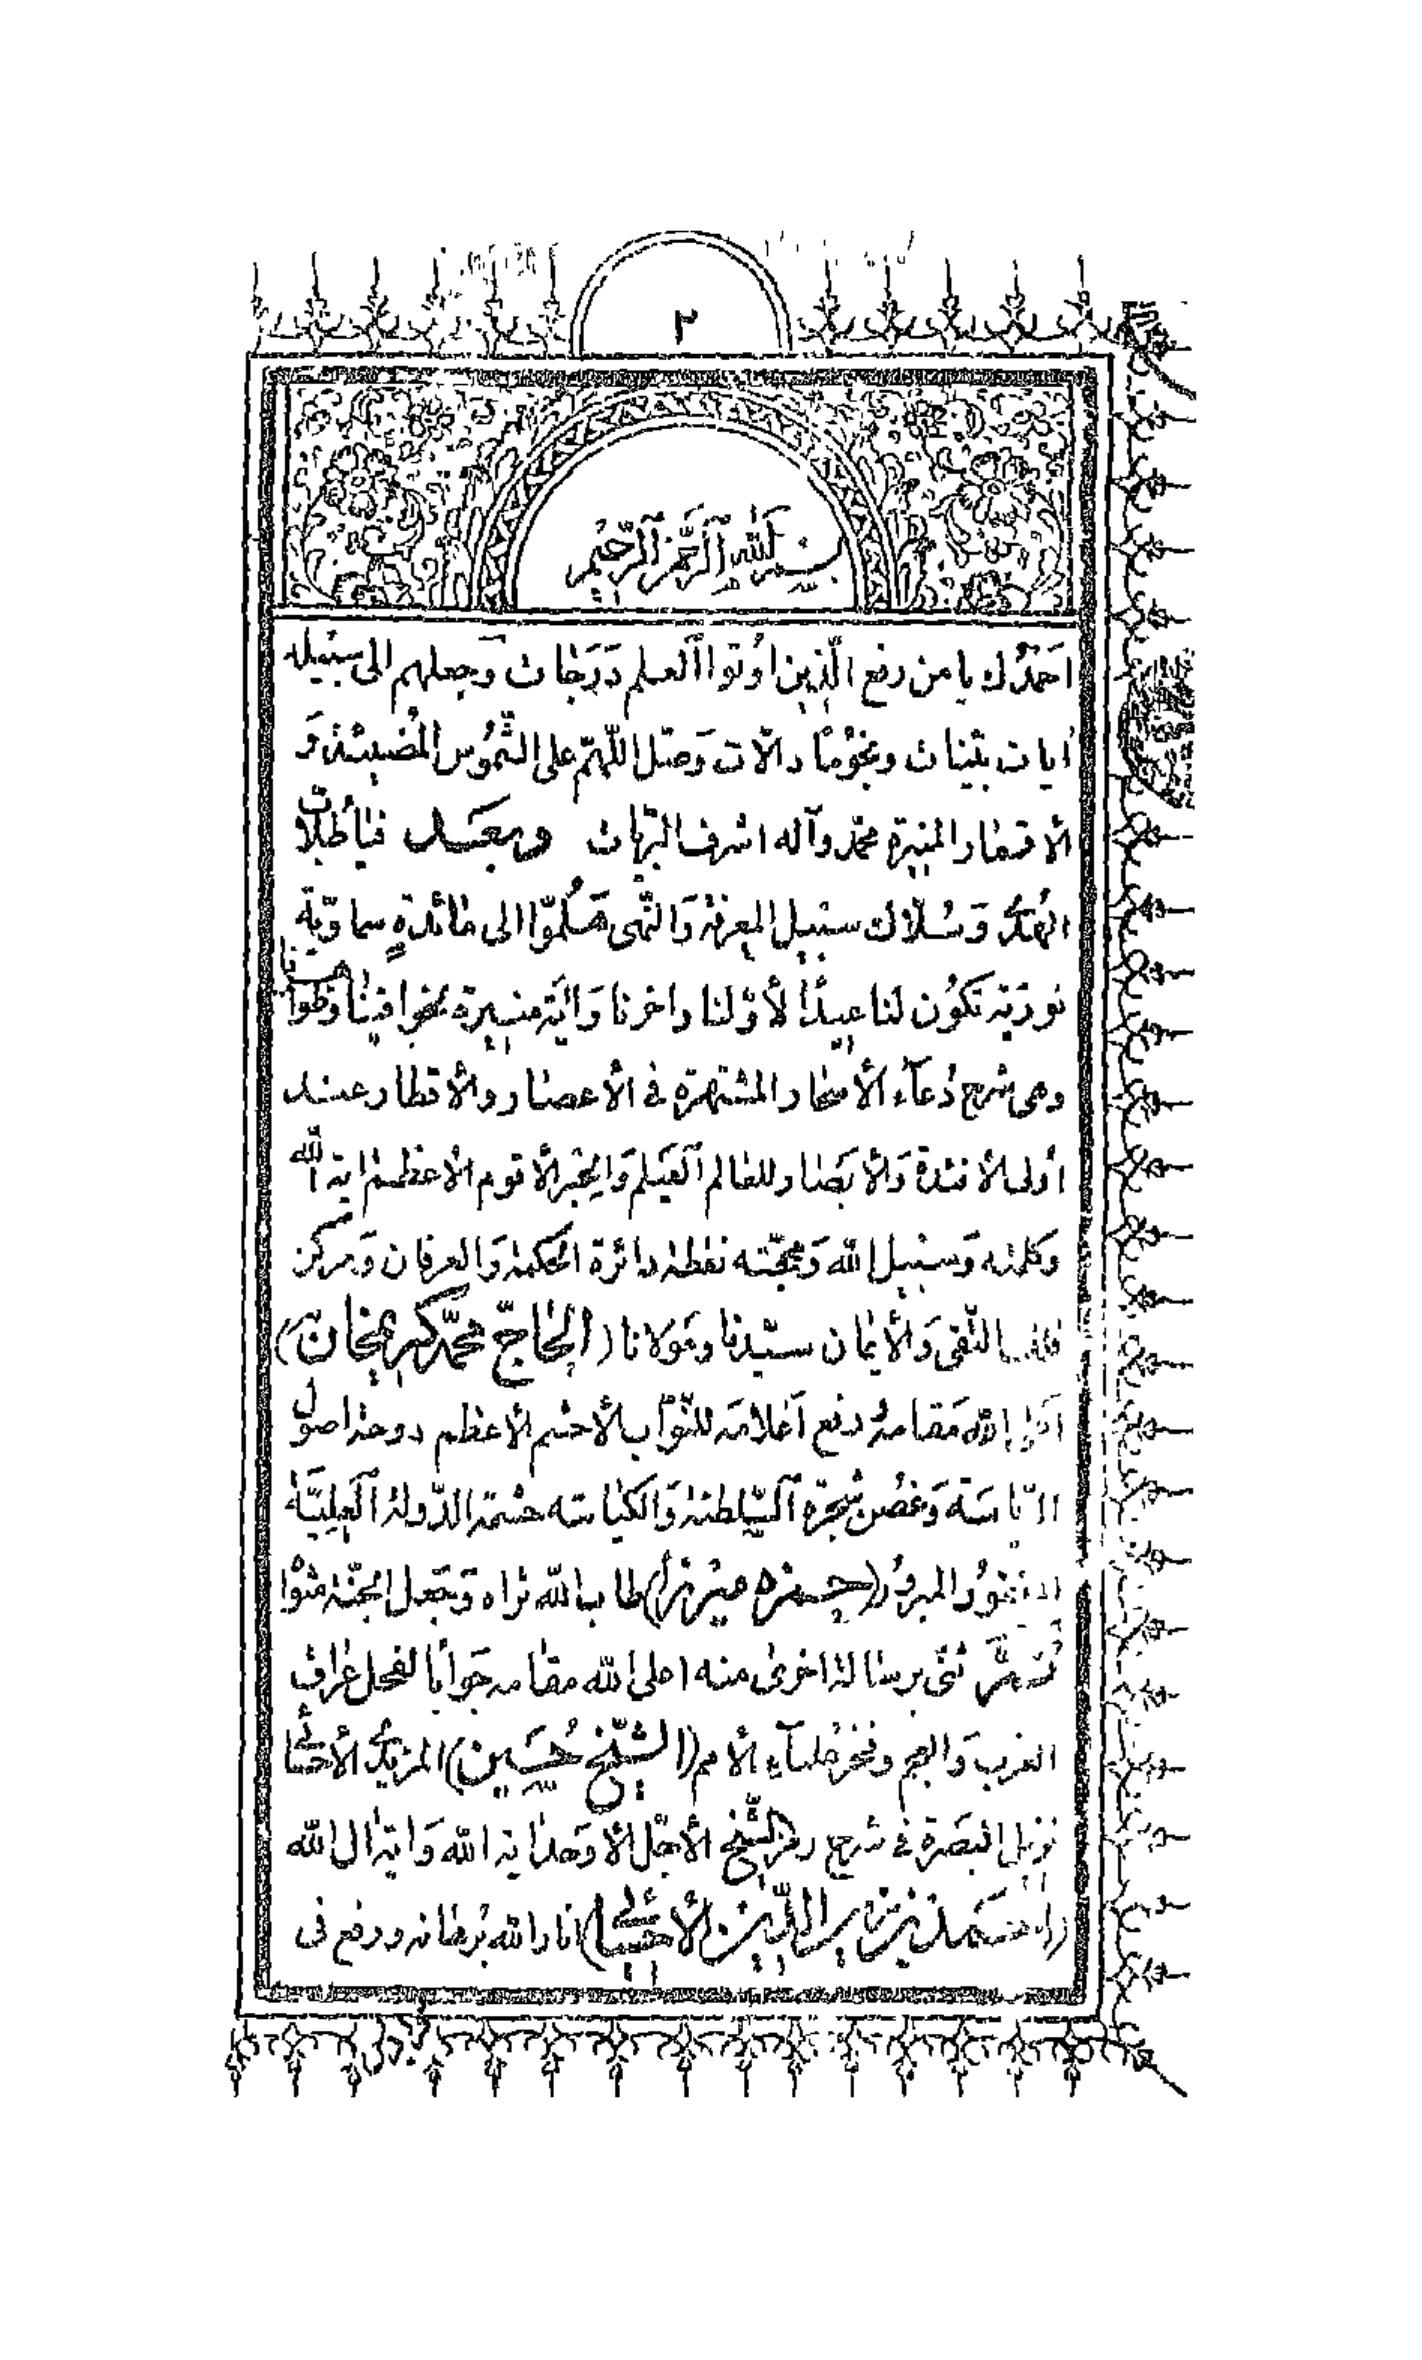 ٢
بسم الله الرحمن الرحيم
احمدك يا من رفع الّذين اوتوا العلم درجات وجعلهم الى سبيله
ايات بيّنات ونجومًا دالّات وصلّ اللّهمّ على الشّموس المضيئة و
الاقمار المنيرة محمّد وآله اشرف البريّات وبعد فيا طلّاب
الهدى وسُلّاك سبيل المعرفة والنّهى هلمّوا الى مائدةٍ سماويّة
نوريّة تكون لنا عيدًا لأوّلنا واخرنا واية منيرة
وهى شرح دُعاء الأسحار المشتهرة فى الأعصار والأقطار عند
اولى الأفئدة والأبصار للعالم العيلم والحبر الأقوم الأعظم اية الله
وكلمته وسبيل الله ومحجّته نقطة دائرة الحكمة والعرفان ومركز
التّقى والأيمان سيّدنا ومولانا (الحاجّ محمّد كريمخان)
اعلى الله مقامه ورفع اعلامه للنّوّاب الأحشم الأعظم دوحة اصول
الرّياسة وغصن شجرة السّلطنة والكياسة حشمة الدّولة العليّة
المغفور المبرور (حمزه ميرزا) طاب الله ثراه وجعل الجنّة مثواه
ثمّ ثنّى برسالة اخرى منه اعلى الله مقامه جوابًا لفحل عراف
العرب والعجم وفخر علمآء الأمم (الشّيخ حُسَين) المزيدى الأحسائى
نزيل البصرة فى شرح رمز الشّيخ الأجلّ الأوحد اية الله واية ال الله
(احمد بن زين الدّين الأحسائى) انار الله برهانه ورفع فى